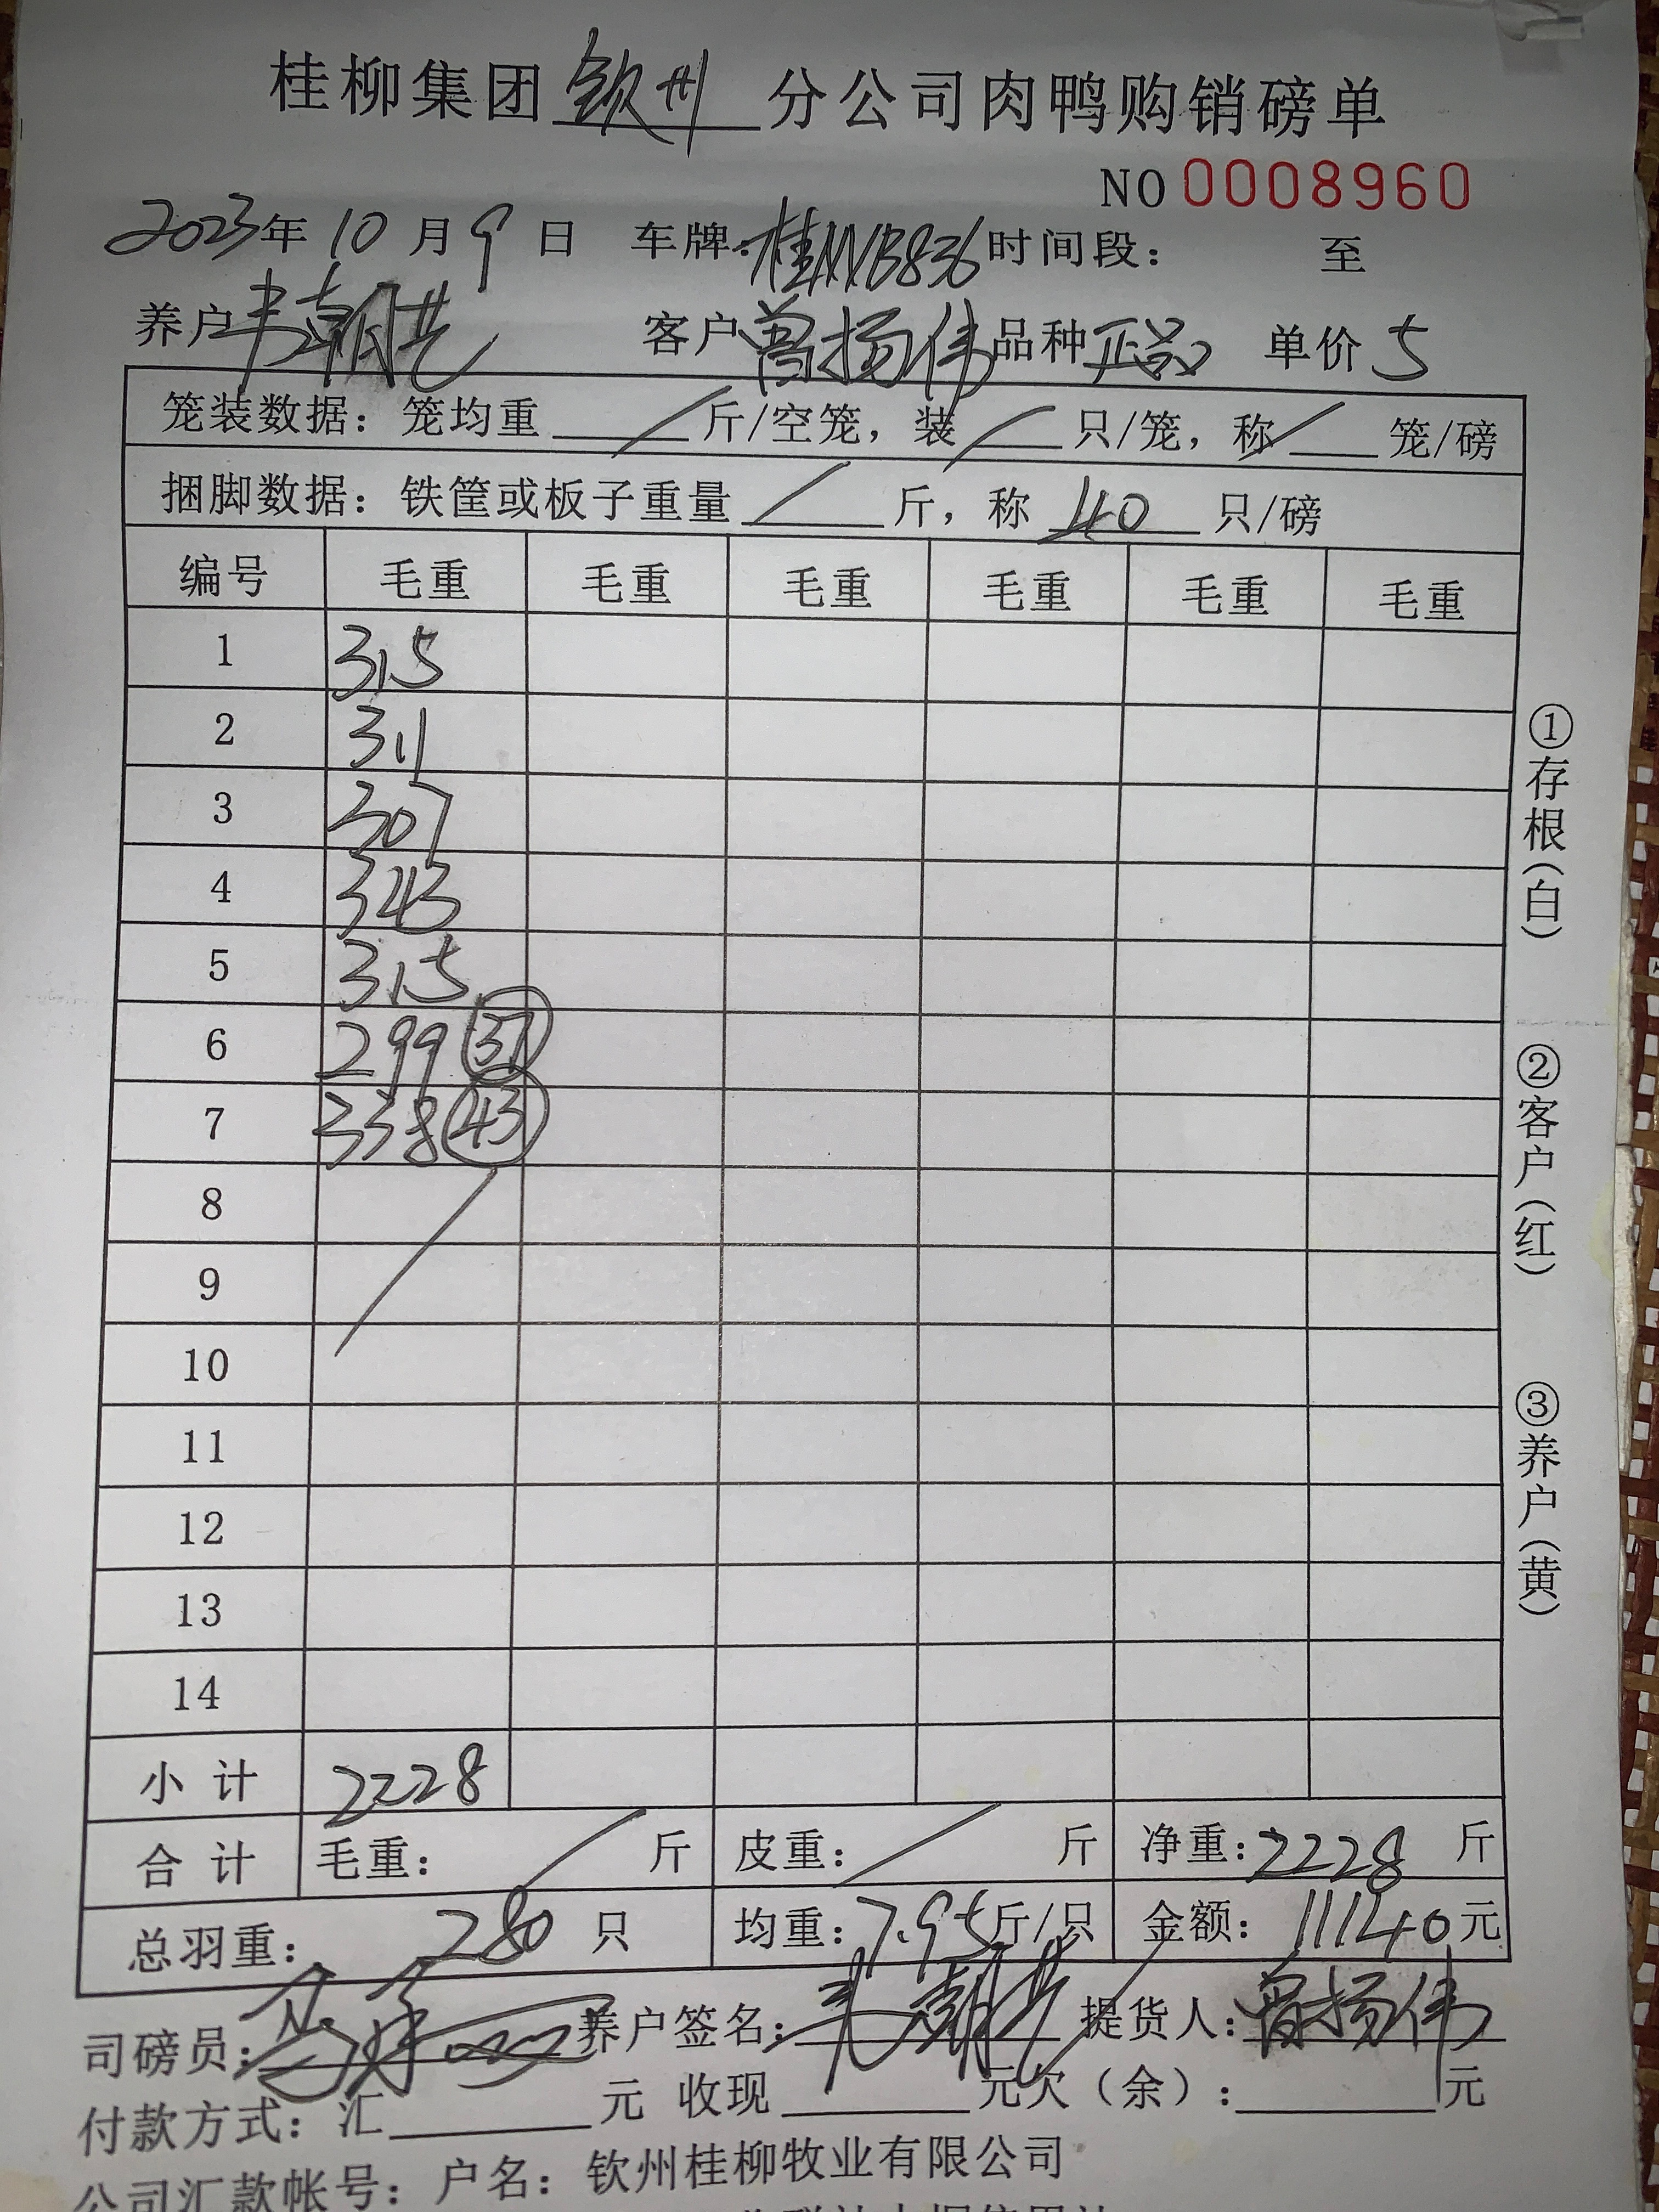 桂柳集团钦州分公司肉鸭购销磅单
NO 0008960
2023年10月9日 车牌: 桂NVB836 时间段: 至
养户 韦朝艺 客户 曾扬伟 品种 正品 单价 5
笼装数据: 笼均重 / 斤/空笼, 装 / 只/笼, 称 / 笼/磅
捆脚数据: 铁筐或板子重量 / 斤, 称 40 只/磅
编号 毛重 毛重 毛重 毛重 毛重 毛重
1 315
2 311
3 307
4 343
5 315
6 299 37
7 338 43
8
9
10
11
12
13
14
小计 2228
合计 毛重: / 斤 皮重: / 斤 净重: 2228 斤
总羽重: 280 只 均重: 7.95斤/只 金额: 11140元
司磅员: 养户签名: 韦朝艺 提货人: 曾扬伟
付款方式: 汇 元 收现 元欠(余): 元
公司汇款帐号: 户名: 钦州桂柳牧业有限公司
①存根(白)
②客户(红)
③养户(黄)